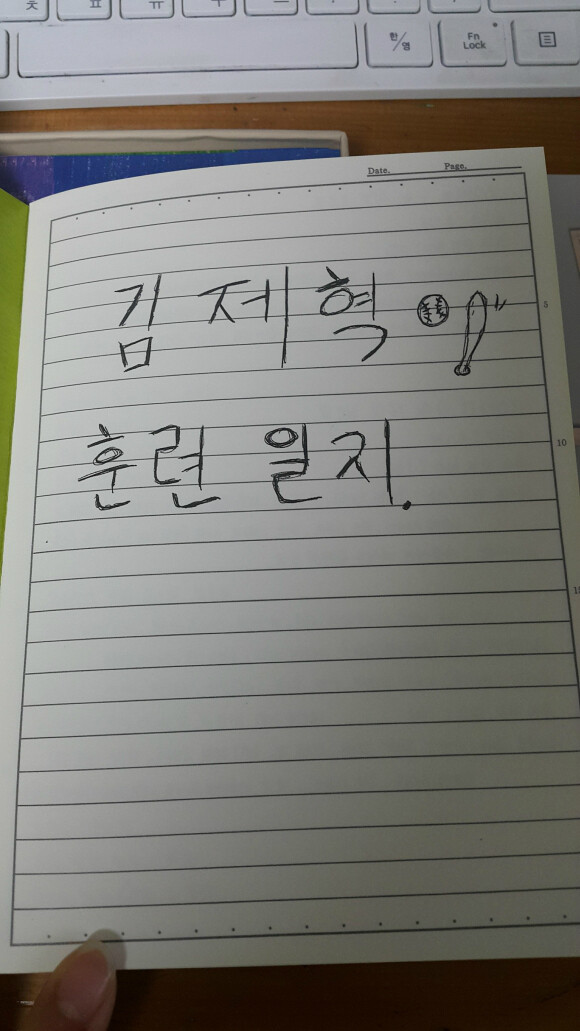 ㅊ ㅍ ㅠ ㅜ ㅡ
한/영 Fn Lock
Date. Page.
김제혁
5
훈련 일지.
10